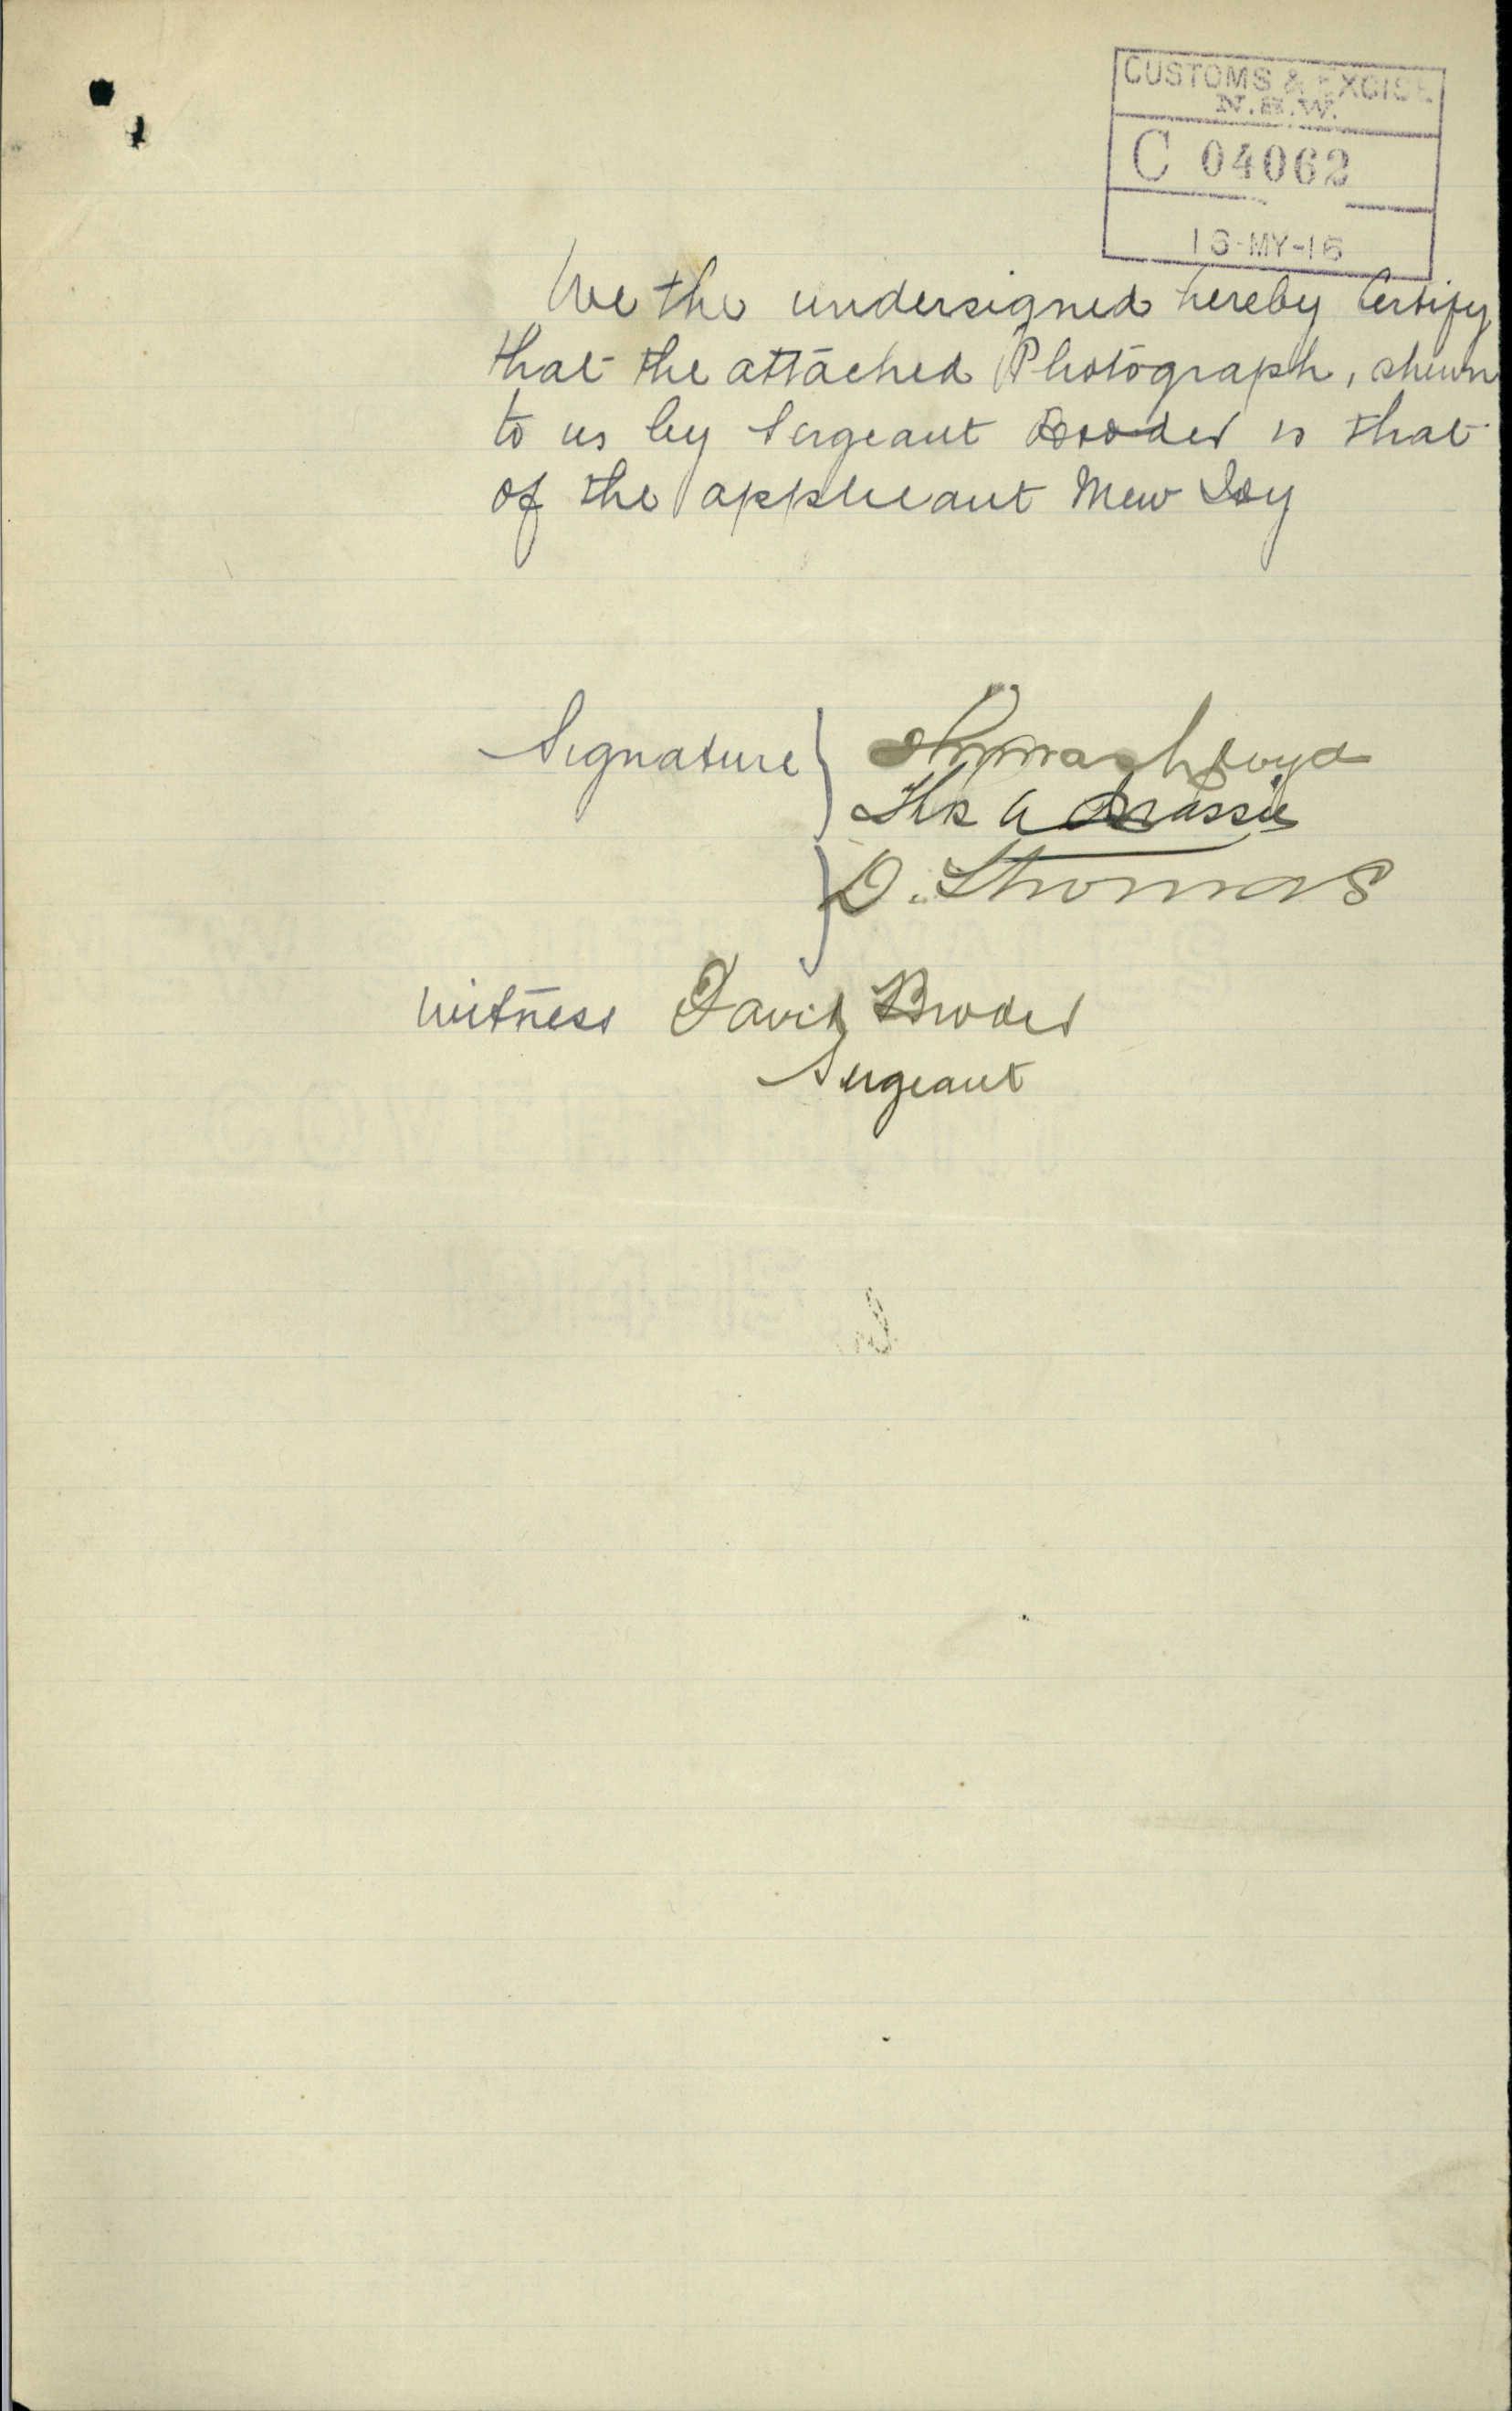 CUSTOMS & EXCISE
N.S.W.
C 04062
16-MY-16
We the undersigned hereby Certify
that the attached Photograph, shewn
to us by Sergeant Broder is that
of the applicant Mew Joy
Signature
Thos A Massie
D. Thomas
Witness David Broder
Sergeant